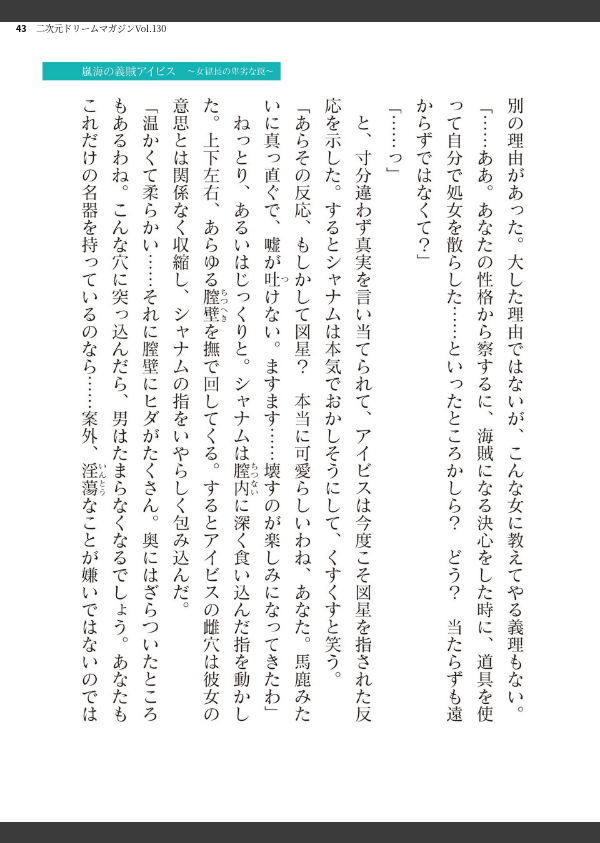 43 二次元ドリームマガジンVol.130
嵐海の義賊アイビス ～女獄長の卑劣な罠～
別の理由があった。大した理由ではないが、こんな女に教えてやる義理もない。
「……ああ。あなたの性格から察するに、海賊になる決心をした時に、道具を使
って自分で処女を散らした……といったところかしら？　どう？　当たらずも遠
からずではなくて？」
「……っ」
　と、寸分違わず真実を言い当てられて、アイビスは今度こそ図星を指された反
応を示した。するとシャナムは本気でおかしそうにして、くすくすと笑う。
「あらその反応、もしかして図星？　本当に可愛らしいわね、あなた。馬鹿みた
いに真っ直ぐで、嘘が吐つけない。ますます……壊すのが楽しみになってきたわ」
　ねっとり、あるいはじっくりと。シャナムは膣内ちつないに深く食い込んだ指を動かし
た。上下左右、あらゆる膣壁ちつへきを撫で回してくる。するとアイビスの雌穴は彼女の
意思とは関係なく収縮し、シャナムの指をいやらしく包み込んだ。
「温かくて柔らかい……それに膣壁にヒダがたくさん。奥にはざらついたところ
もあるわね。こんな穴に突っ込んだら、男はたまらなくなるでしょう。あなたも
これだけの名器を持っているのなら……案外、淫蕩いんとうなことが嫌いではないのでは